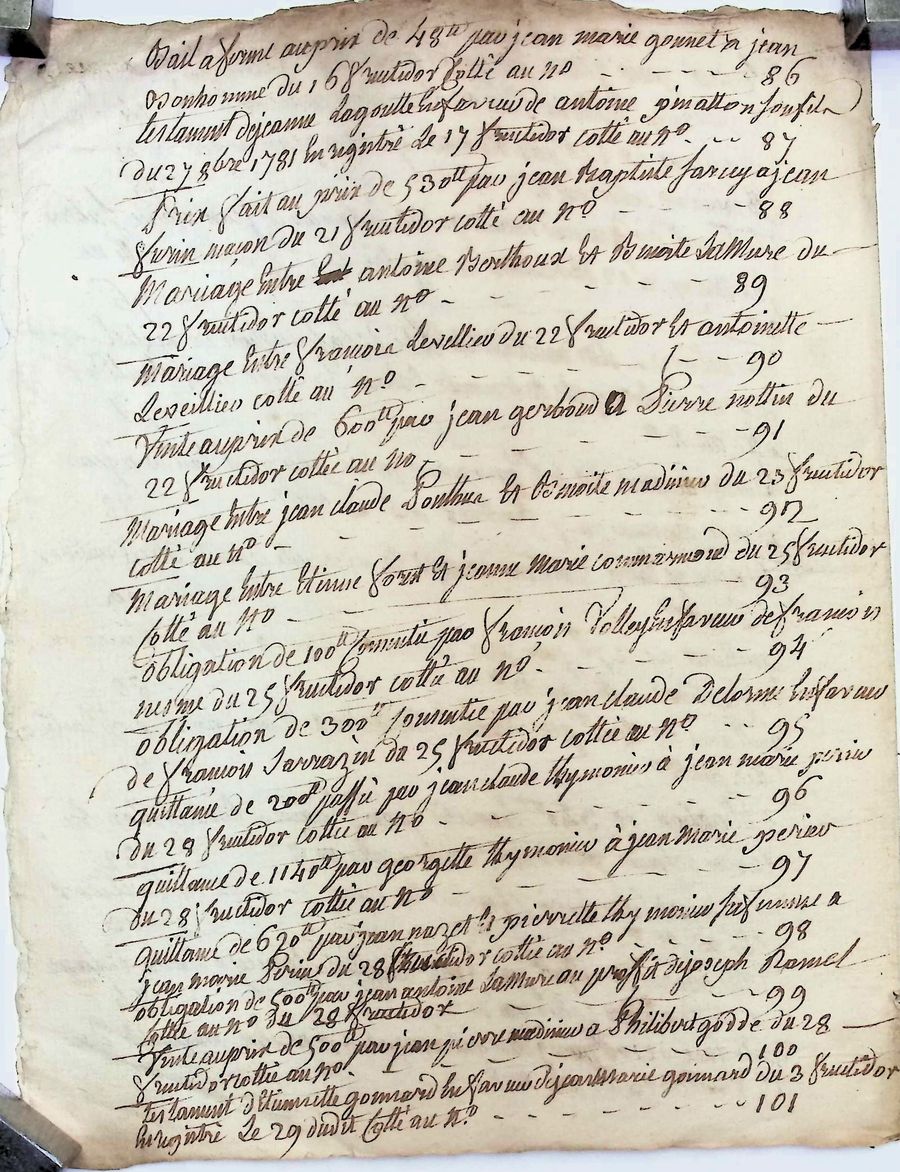 Bail a ferme au prix de 48tt par jean marie gonnet a jean
Bonhomme du 16 fructidor Cotté au n° - - - - - 86
testament de jeanne Lagoutte En faveur de antoine pinatton son fils
du 27 8bre 1781 Enregistré Le 17 fructidor cotté au n° - - - 87
Prix fait au prix de 530tt par jean Baptiste farcy a jean
maçon du 21 fructidor cotté au n° - - - - 88
Mariage Entre antoine Berthoux Et Benoite LaMure du
22 fructidor cotté au n° - - - - - - - 89
Mariage Entre françois Levellieu du 22 fructidor Et antoinette
cotté au n° - - - - - - 90
Vente au prix de 600tt par jean gerboud a Pierre nottin du
22 fructidor cottée au no - - - - - - 91
Mariage Entre jean claude Ponthus Et Benoite madinier du 23 fructidor
cotté au n° - - - - - - - - 92
Mariage Entre Etienne forest Et jeanne Marie commarmond du 25 fructidor
Cotté au no - - - 93
obligation de 100tt Consentie par françois En faveur de françois
du 25 fructidor cotté au n° - - - - 94
obligation de 300tt Consentie par jean claude Delorme En faveur
de françois Sarrazin du 25 fructidor cottée au n° - - 95
quittance de 200tt passé par jean claude thymonier à jean marie perier
du 28 fructidor cottée au n° - - - - - - 96
quittance de 1140tt par georgette thymonier à jean Marie perier
du 28 fructidor cottée au n° - - - - - - 97
quittance de 620tt par jean nazet Et pierrette thymonier sa femme a
jean marie Perier du 28 fructidor cottée au n° - - - - 98
obligation de 500tt par jean antoine LaMure au proffit de joseph Ramel
Cotté au no du 28 fructidor - - - - - 99
Vente au prix de 500tt par jean pierre madinier a Philibert godde du 28
fructidor cottée au no - - - - - - 100
testament d'Etiennette gonnard En faveur de jean Marie gonnard du 3 fructidor
Enregistré Le 29 dudit Cotté au n° - - - - - - 101